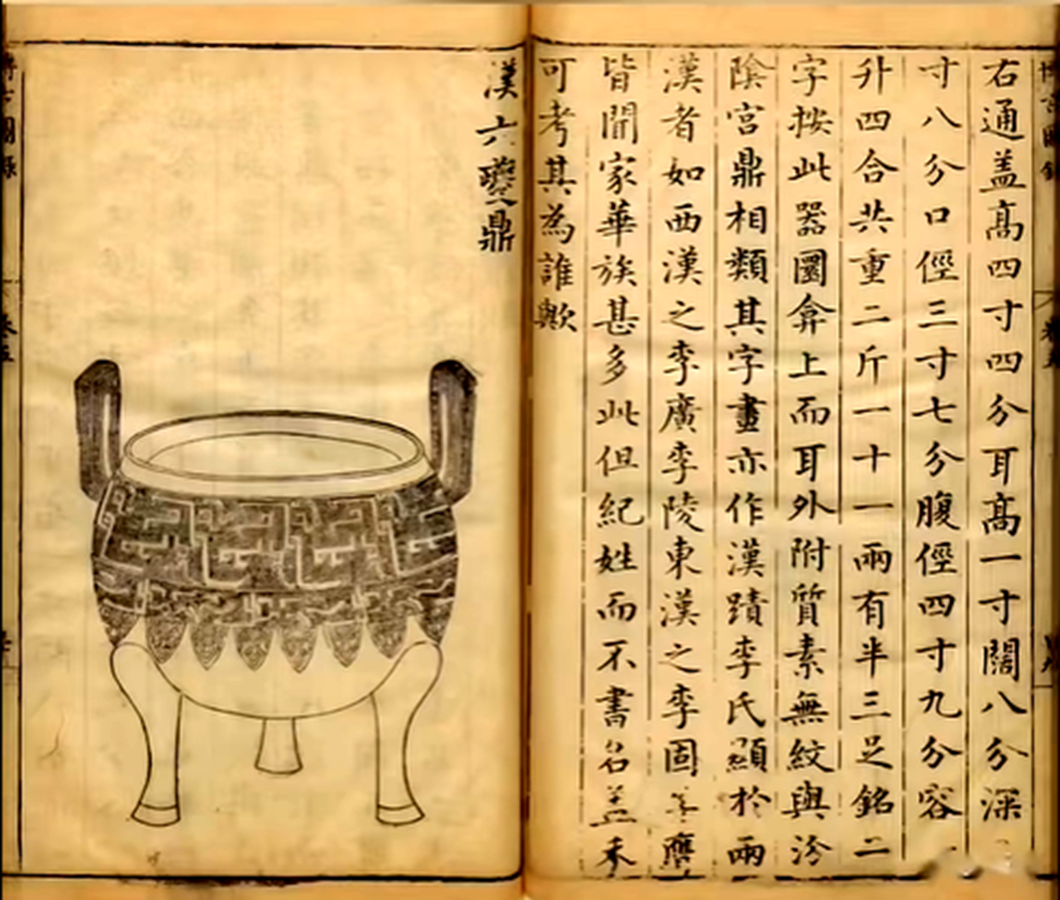 右通盖髙四寸四分耳髙一寸闊八分深
寸八分口徑三寸七分腹徑四寸九分容
升四合共重二斤一十一兩有半三足銘二
字按此器圜弇上而耳外附質素無紋與汾
陰宮鼎相類其字畫亦作漢蹟李氏顯於兩
漢者如西漢之李廣李陵東漢之李固李膺
皆聞家華族甚多此但紀姓而不書名盖未
可考其為誰歟
漢六夔鼎